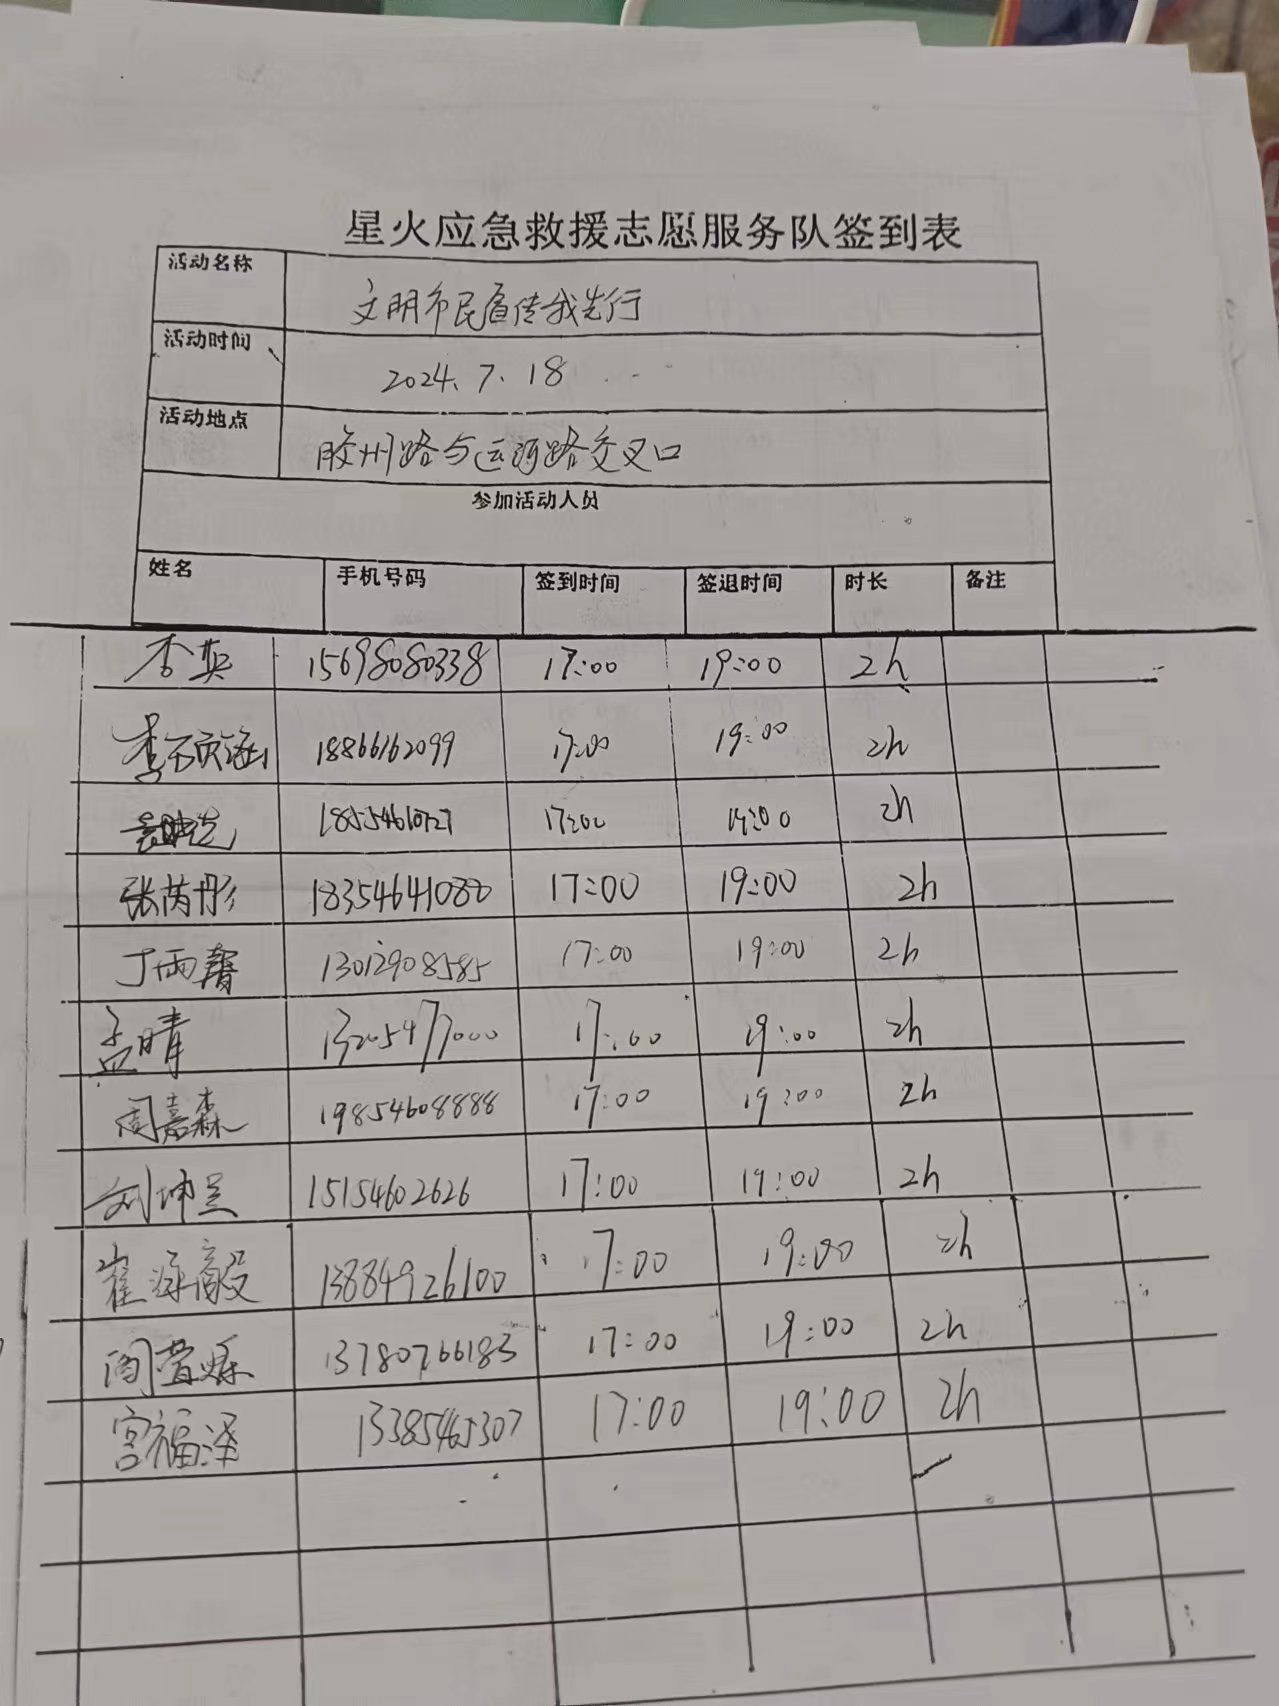 星火应急救援志愿服务队签到表
活动名称 文明市民宣传我先行
活动时间 2024.7.18
活动地点 胶州路与运河路交叉口
参加活动人员
姓名 手机号码 签到时间 签退时间 时长 备注
李英 15698080338 17:00 19:00 2h
李 18866162099 17:00 19:00 2h
17:00 19:00 2h
张芮彤 18354641088 17:00 19:00 2h
丁雨馨 13012908585 17:00 19:00 2h
孟晴 13205477000 17:00 19:00 2h
周嘉森 19854608888 17:00 19:00 2h
刘坤昊 15154602626 17:00 19:00 2h
崔 13884926100 17:00 19:00 2h
阎 13780766183 17:00 19:00 2h
宫福泽 13385465307 17:00 19:00 2h